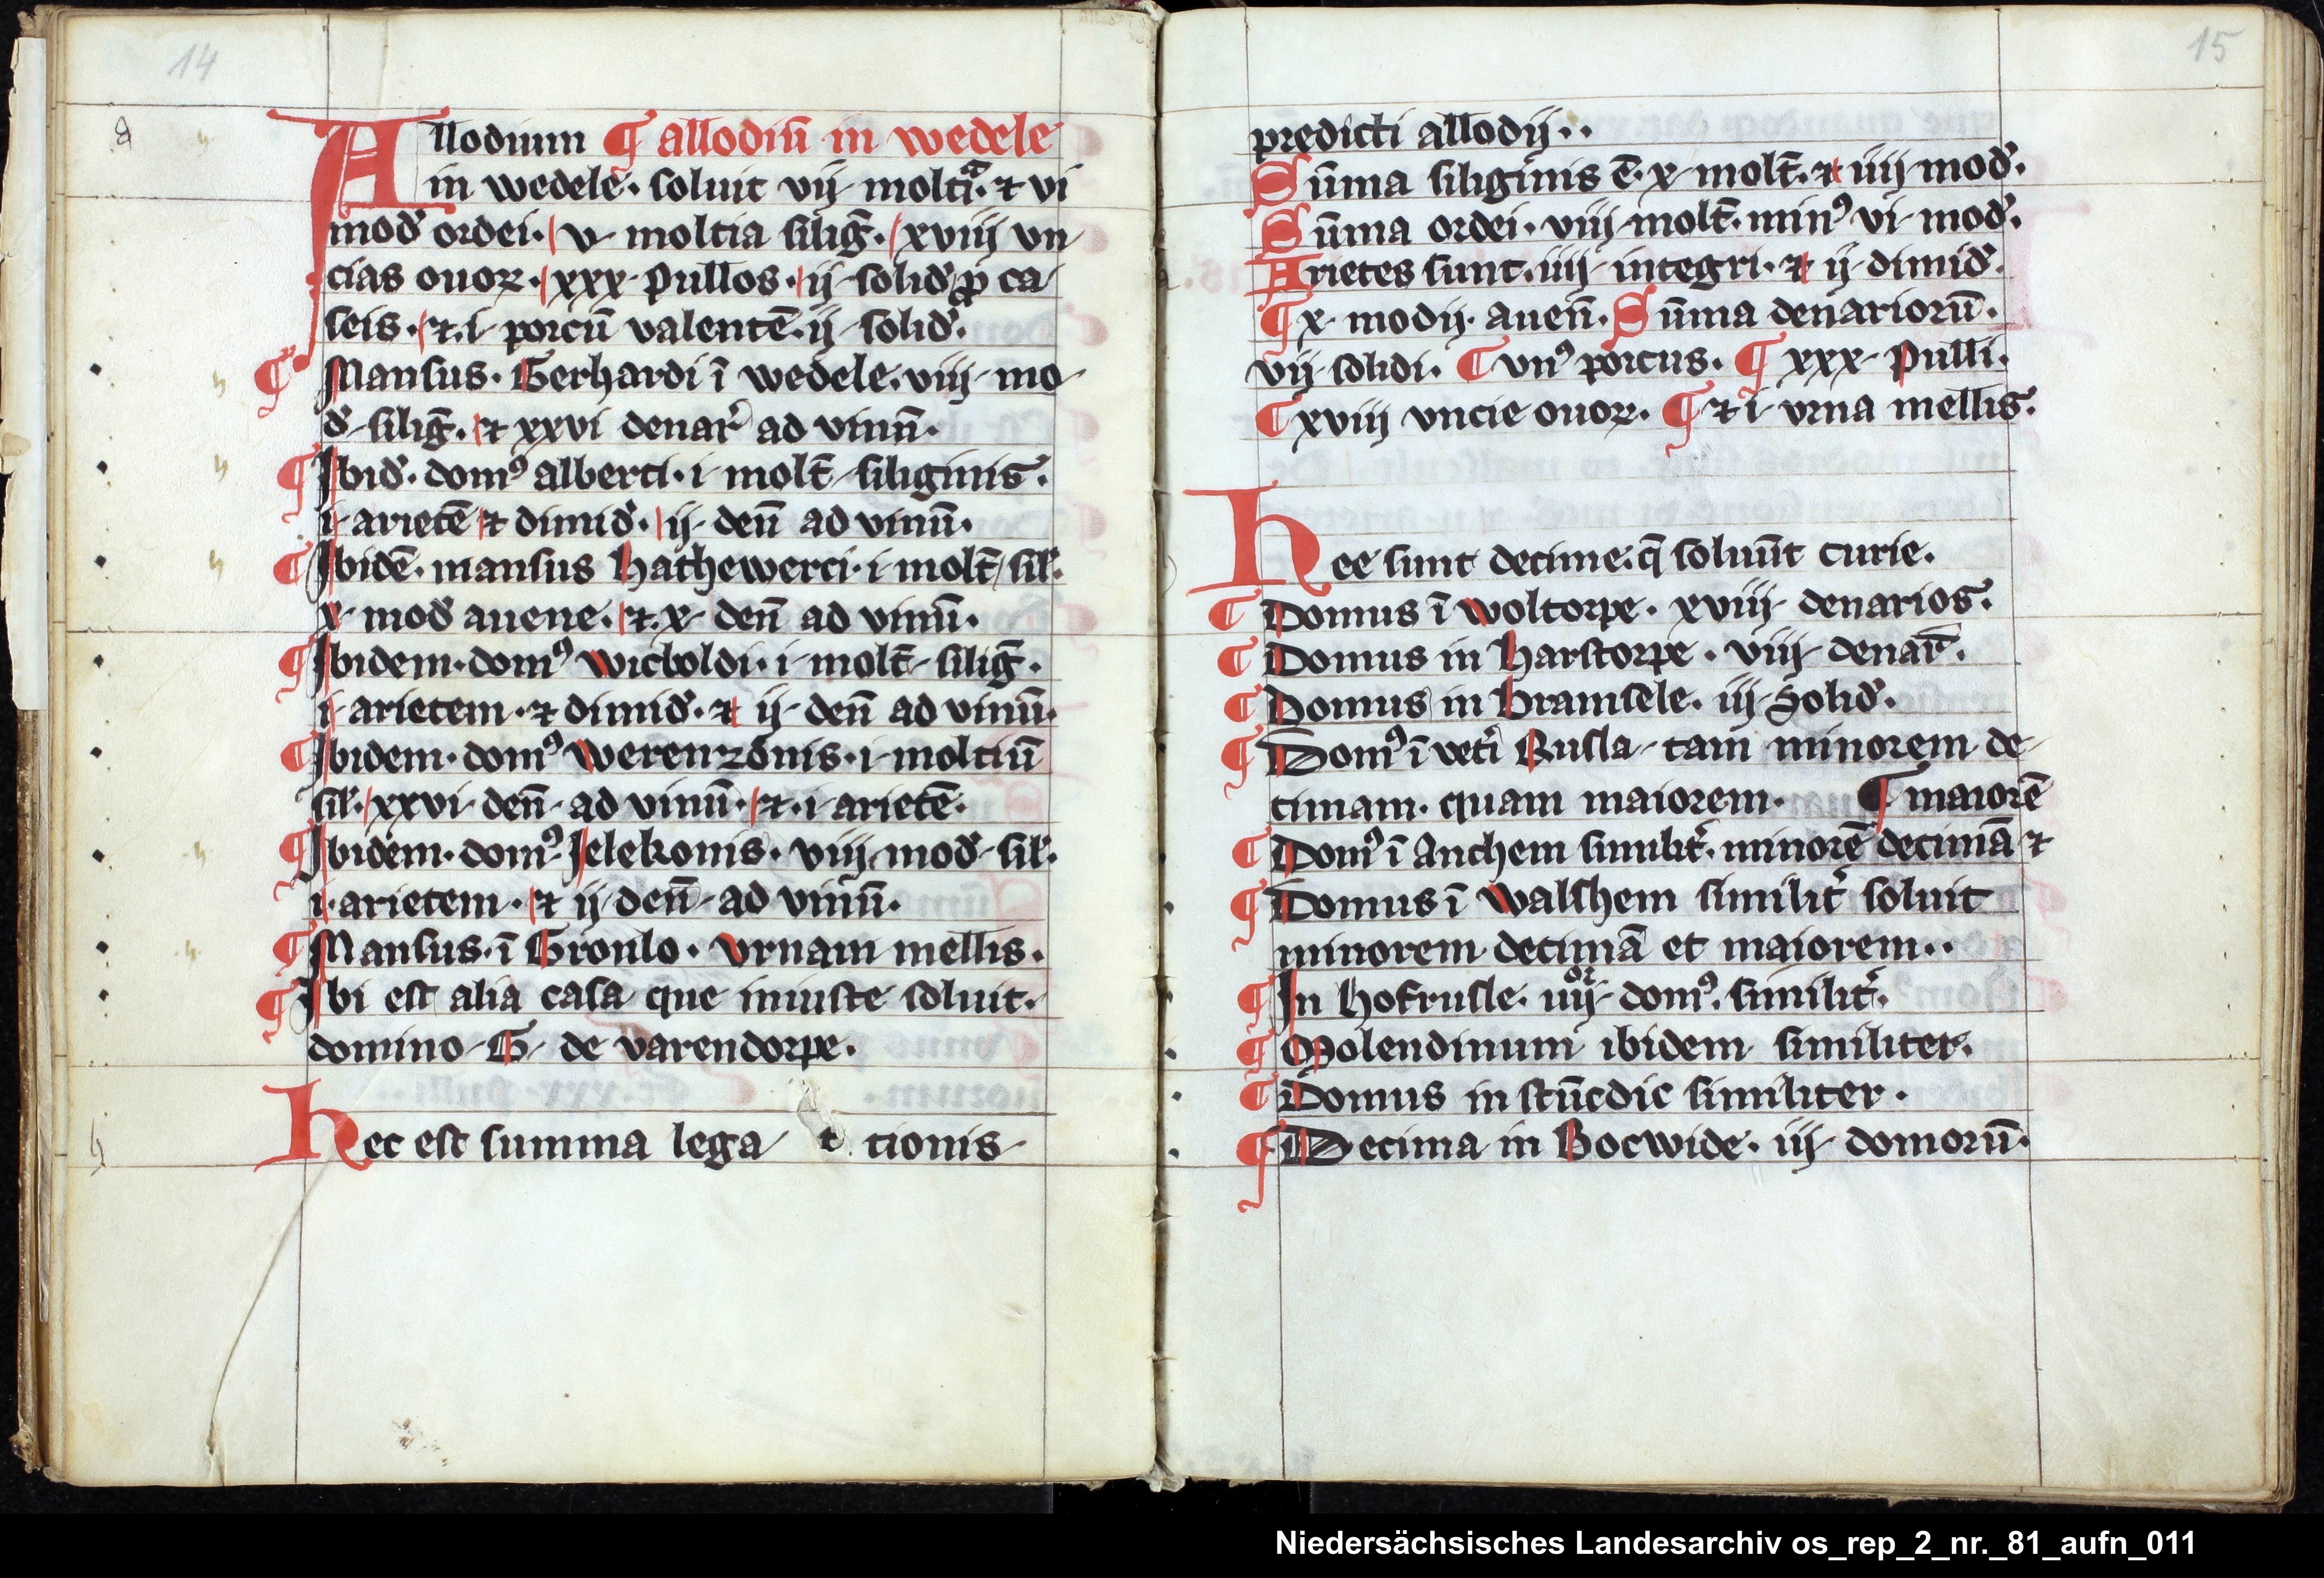 14
Allodium ¶ allodiū in wedele
in wedele· soluit vij moltia· ⁊ vi
mod̄ ordei· v moltia siliḡ· xviij vn
cias ouoꝝ· xxx pullos· ij solid̄ ꝓ ca
seis· ⁊ i porcū valentē ij solid̄·
¶ Mansus· Gerhardi ī wedele· viij mo
d̄ siliḡ· ⁊ xxvi denar̄ ad vinū·
¶ Ibid̄· domꝰ alberti· i molt̄ siliginis·
i arietē ⁊ dimid̄· ij den̄ ad vinū·
¶ Ibidē· mansus hathewerci· i molt̄ sil̄·
x mod̄ auene· ⁊ x den̄ ad vinū·
¶ Ibidem· domꝰ wicboldi· i molt̄ siliḡ·
i arietem· ⁊ dimid̄· ⁊ ij den̄ ad vinū·
¶ Ibidem· domꝰ werenzonis· i moltiū
sil̄· xxvi den̄ ad vinū· ⁊ i arietē·
¶ Ibidem· domꝰ Jelekonis· viij mod̄ sil̄·
i arietem· ⁊ ij den̄ ad vinū·
¶ Mansus· ī Gronlo· vrnam mellis·
¶ Ibi est alia casa que iniuste soluit·
domino G de varendorpe·
hec est summa lega t tionis
15
predicti allodij··
Sūma siliginis ē· x molt̄· ⁊ iiij mod̄·
Sūma ordei· viij molt̄· minꝰ vi mod̄·
Arietes sunt· iiij integri· ⁊ ij dimid̄·
¶ x modij auen̄· Sūma denariorū·
vij solidi· ¶ vnꝰ porcus· ¶ xxx pulli·
¶ xviij vncie ouoꝝ· ¶ ⁊ i vrna mellis·
hee sunt decime· q̄ soluūt curie·
¶ Domus ī woltorpe· xviij denarios·
¶ Domus in harstorpe· viij denar̄·
¶ Domus in bramsele· iij solid̄·
¶ Domꝰ ī veti Rusla tam minorem de
cimam· quam maiorem· ¶ maiorē
¶ Domꝰ ī anchem similit̄· minorē decimā ⁊
¶ Domus ī walshem similit̄ soluit
minorem decimā et maiorem··
¶ In hofrusle· iiijor domꝰ· similit̄·
¶ Molendinum ibidem similiter·
¶ Domus in stūcdic similiter·
¶ Decima in Bocwide· iij domorū·
Niedersächsisches Landesarchiv os_rep_2_nr._81_aufn_011